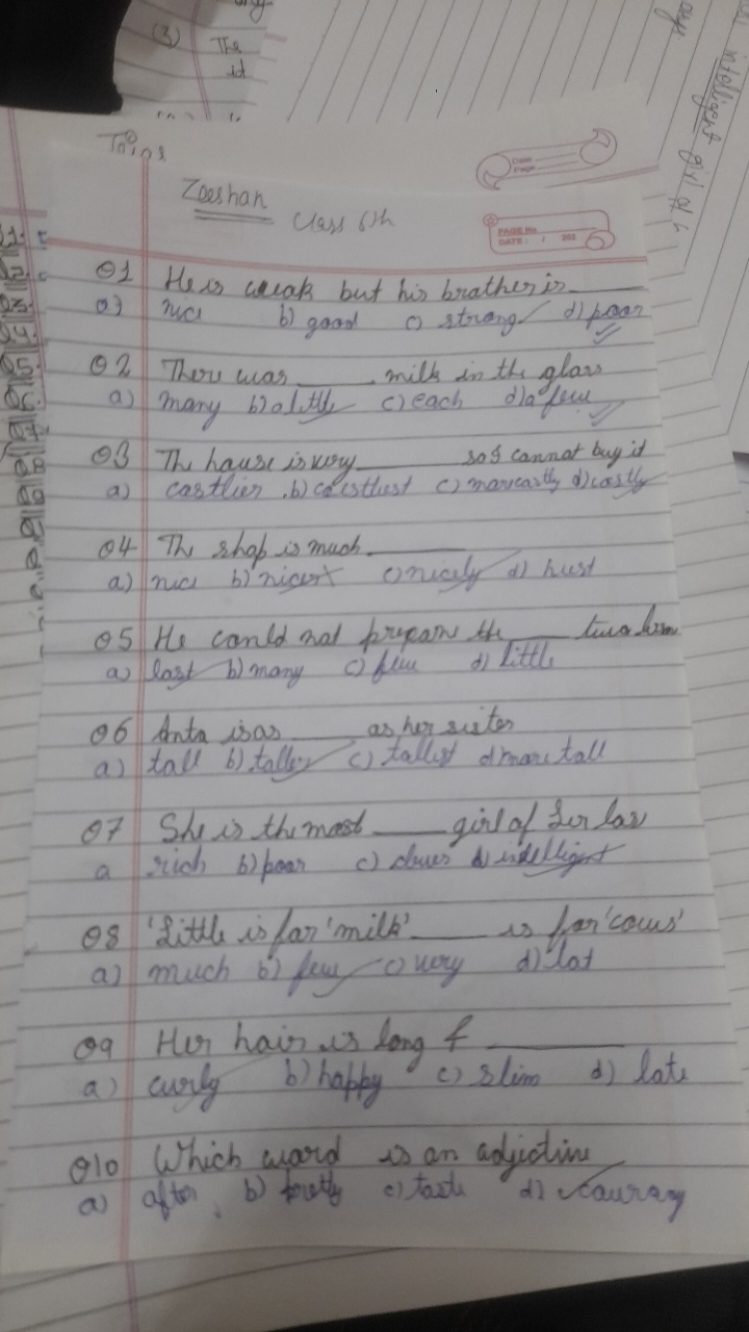 (3) The
id
intelligent girl of
Topics
Zeeshan
Class 6th
PAGE No.
DATE: / / 202
Q1 He is weak but his brother is ______
a) nice b) good c) strong d) poor
Q2 There was ____ milk in the glass
a) many b) a little c) each d) a few
Q3 The house is very ______ so I cannot buy it
a) costlier b) costliest c) more costly d) costly
Q4 The shop is much ______
a) nice b) nicest c) nicely d) hust
Q5 He could not prepare the ____ two
a) last b) many c) few d) little
Q6 Anta is as ____ as her sister
a) tall b) taller c) tallest d) more tall
Q7 She is the most ____ girl of
a rich b) poor c) d) intelligent
Q8 'Little is for 'milk' ____ is for 'cows'
a) much b) few c) very d) lot
Q9 Her hair is long & ______
a) curly b) happy c) slim d) late
Q10 Which word is an adjective
a) after, b) pretty c) taste d) courag